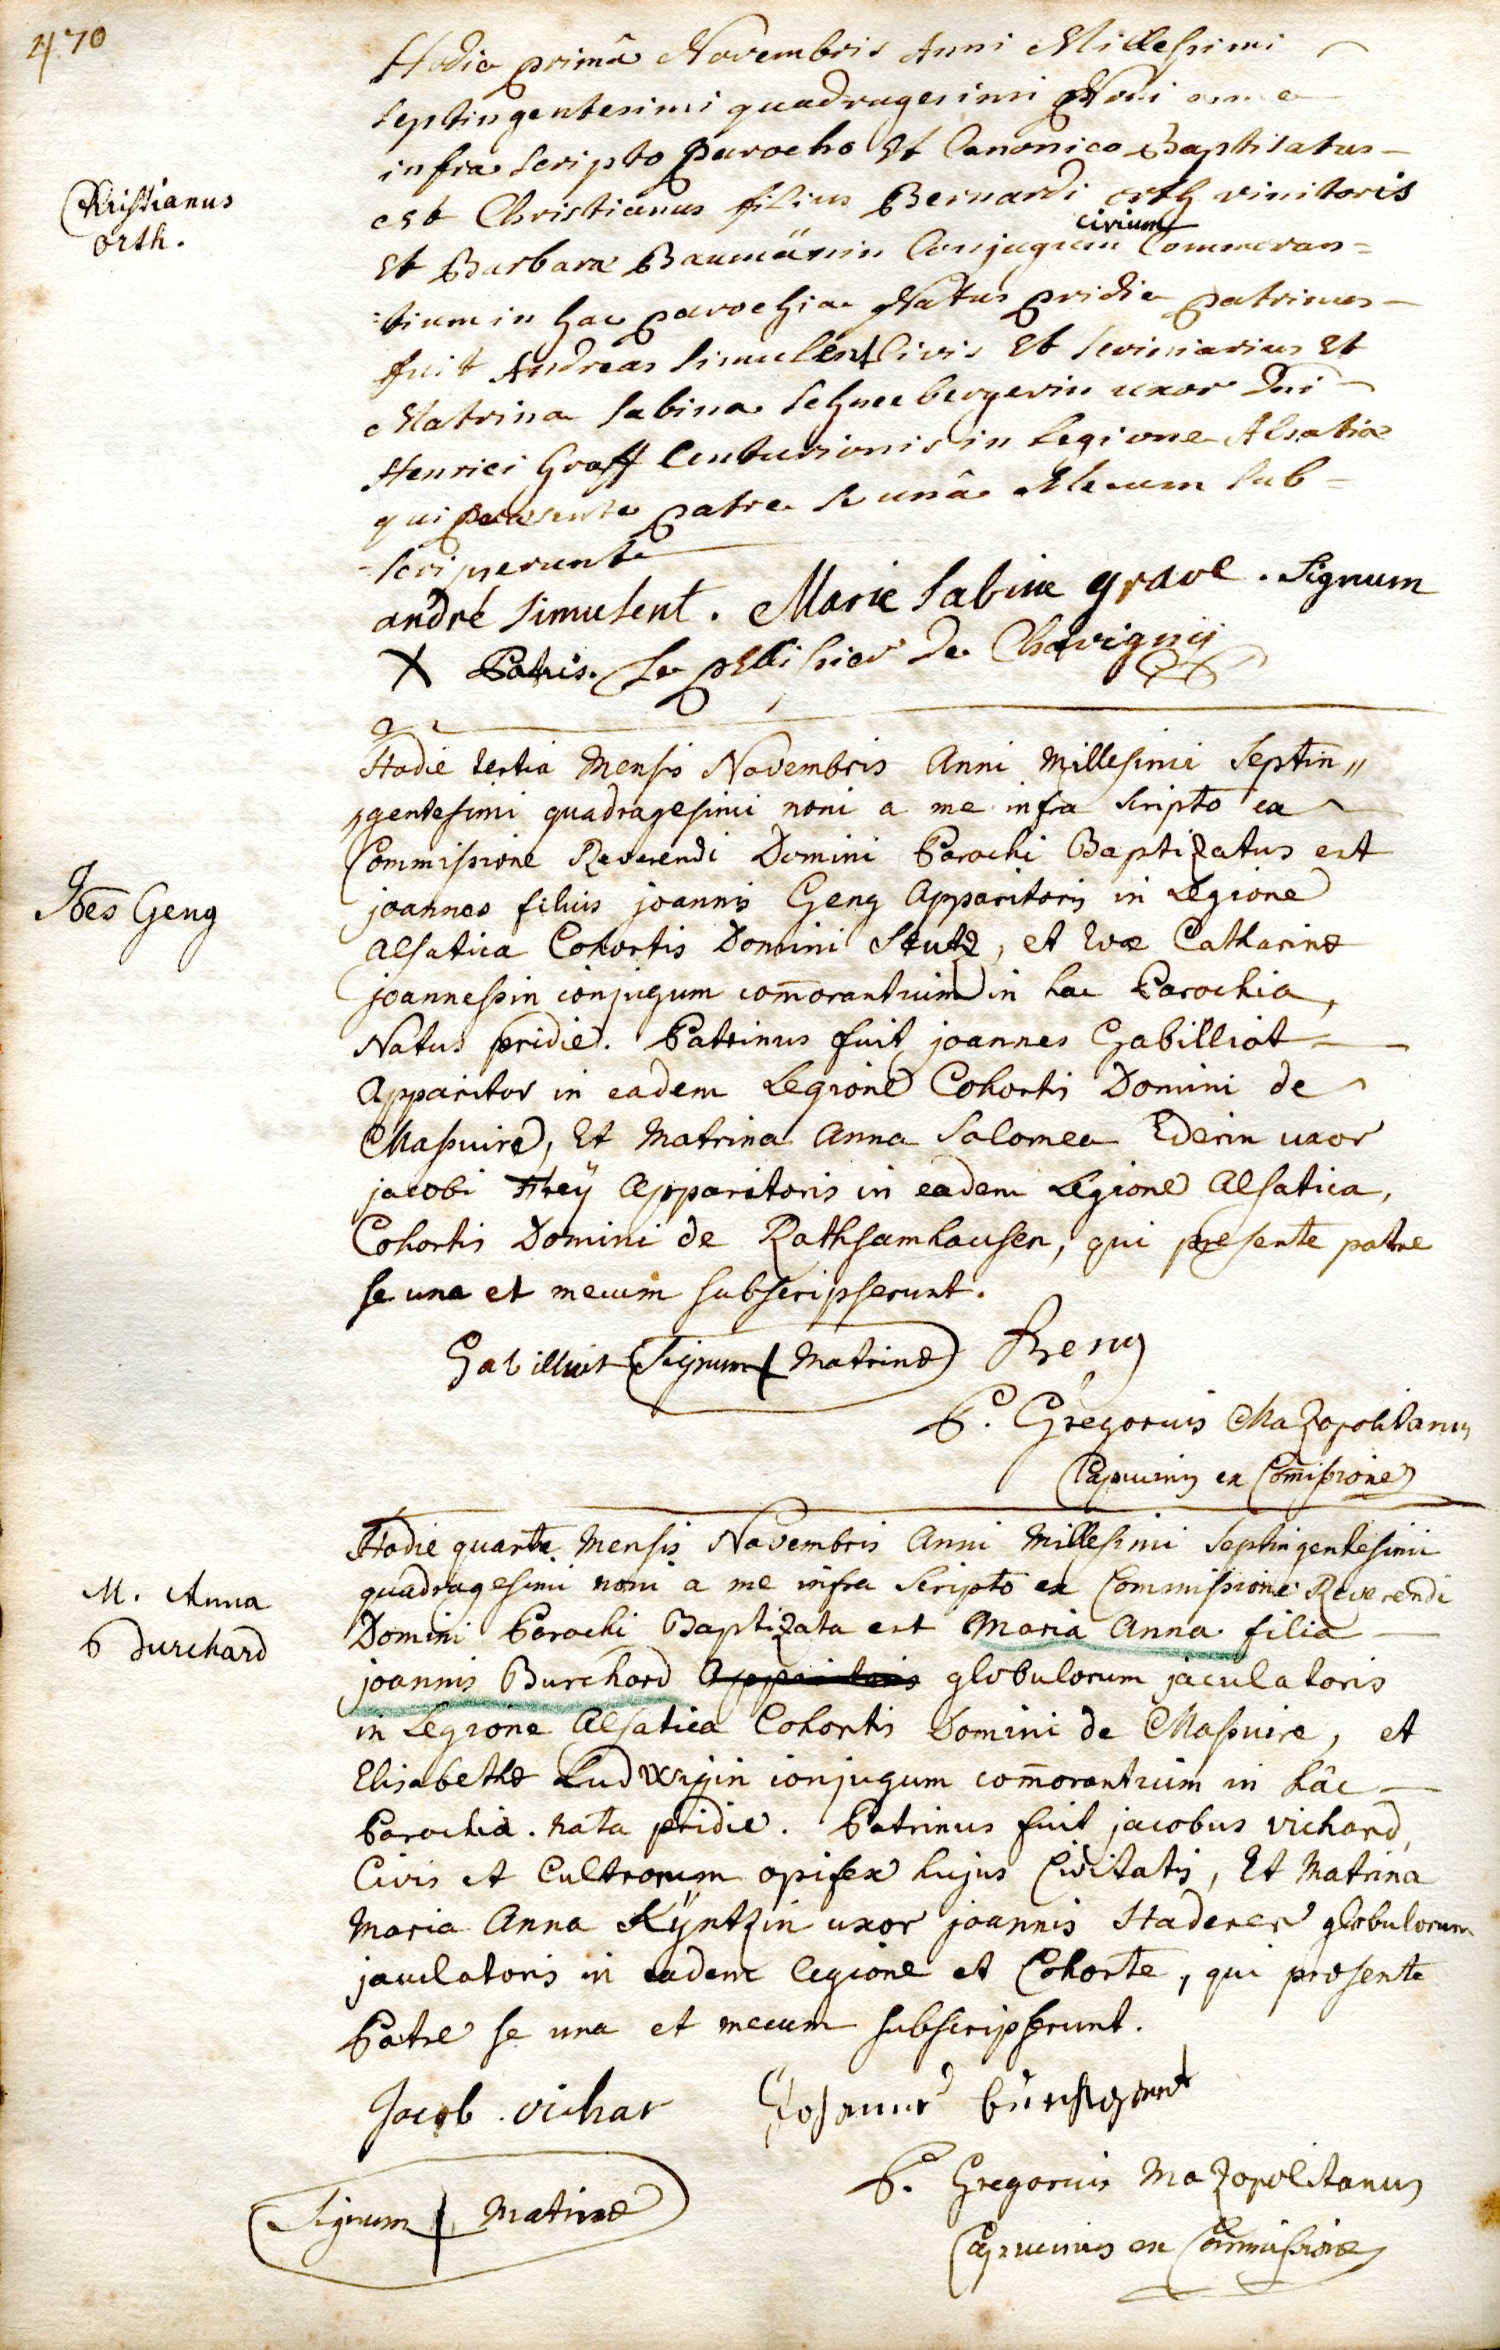 470
Hodie primâ Novembris Anni Millesimi
septingentesimi quadragesimi Noni a me
infra scripto Parocho Et Canonico Baptisatus
est Christianus filius Bernardi orth vinitoris
Christianus
orth.
civium
Et Barbara Baumännin Conjugum Commoran=
=tium in hac parochia Natus pridie patrinus
fuit Andreas Simulent Civis Et scriniarius Et
Matrina Sabina Schneebergerin uxor Dni
Henrici Graff Centurionis in Legione Alsatiæ
qui præsente patre se unâ Mecum sub=
=scripserunt
andré Simulent . Marie Sabine grave . Signum
X Patris. Le pellisier De Chavignÿ
Hodie tertia Mensis Novembris Anni Millesimi Septin„
„gentesimi quadragesimi noni a me infra scripto ex
Commissione Reverendi Domini Parochi Baptizatus est
Jões Geng
joannes filius joannis Geng Apparitoris in Legione
Alsatica Cohortis Domini Stutz, et Evæ Catharinæ
joannessin conjugum com̄orantium in hac Parochia,
Natus pridie. Patrinus fuit joannes Gabilliot
Apparitor in eadem Legione Cohortis Domini de
Maßuire, Et Matrina Anna Salomea Ederin uxor
jacobi Freÿ Apparitoris in eadem Legione Alsatica,
Cohortis Domini de Rathsamhausen, qui præsente patre
se una et mecum subscripserunt.
Gabilliot Signum + Matrinæ Geng
P. Gregorius Mazopolitanus
Capucinus ex Com̄issione
Hodie quarta Mensis Novembris Anni Millesimi Septingentesimi
quadragesimi noni a me infra scripto ex Commissione Reverendi
M. Anna
Burchard
Domini Parochi Baptizata est Maria Anna filia
joannis Burchard Apparitoris globulorum jaculatoris
in Legione Alsatica Cohortis Domini de Maßuire, et
Elisabethæ Ludwigin conjugum com̄orantium in hâc
Parochia. nata pridie. Patrinus fuit jacobus vichard,
Civis et Cultrorum opifex hujus Civitatis, Et Matrina
Maria Anna Kÿntzin uxor joannis Staderer globulorum
jaculatoris in eadem legione et Cohorte, qui præsente
Patre se una et mecum subscripserunt.
Jacob . vichar Johannes
P. Gregorius Mazopolitanus
Signum + Matrinæ
Capucinus ex Commissione